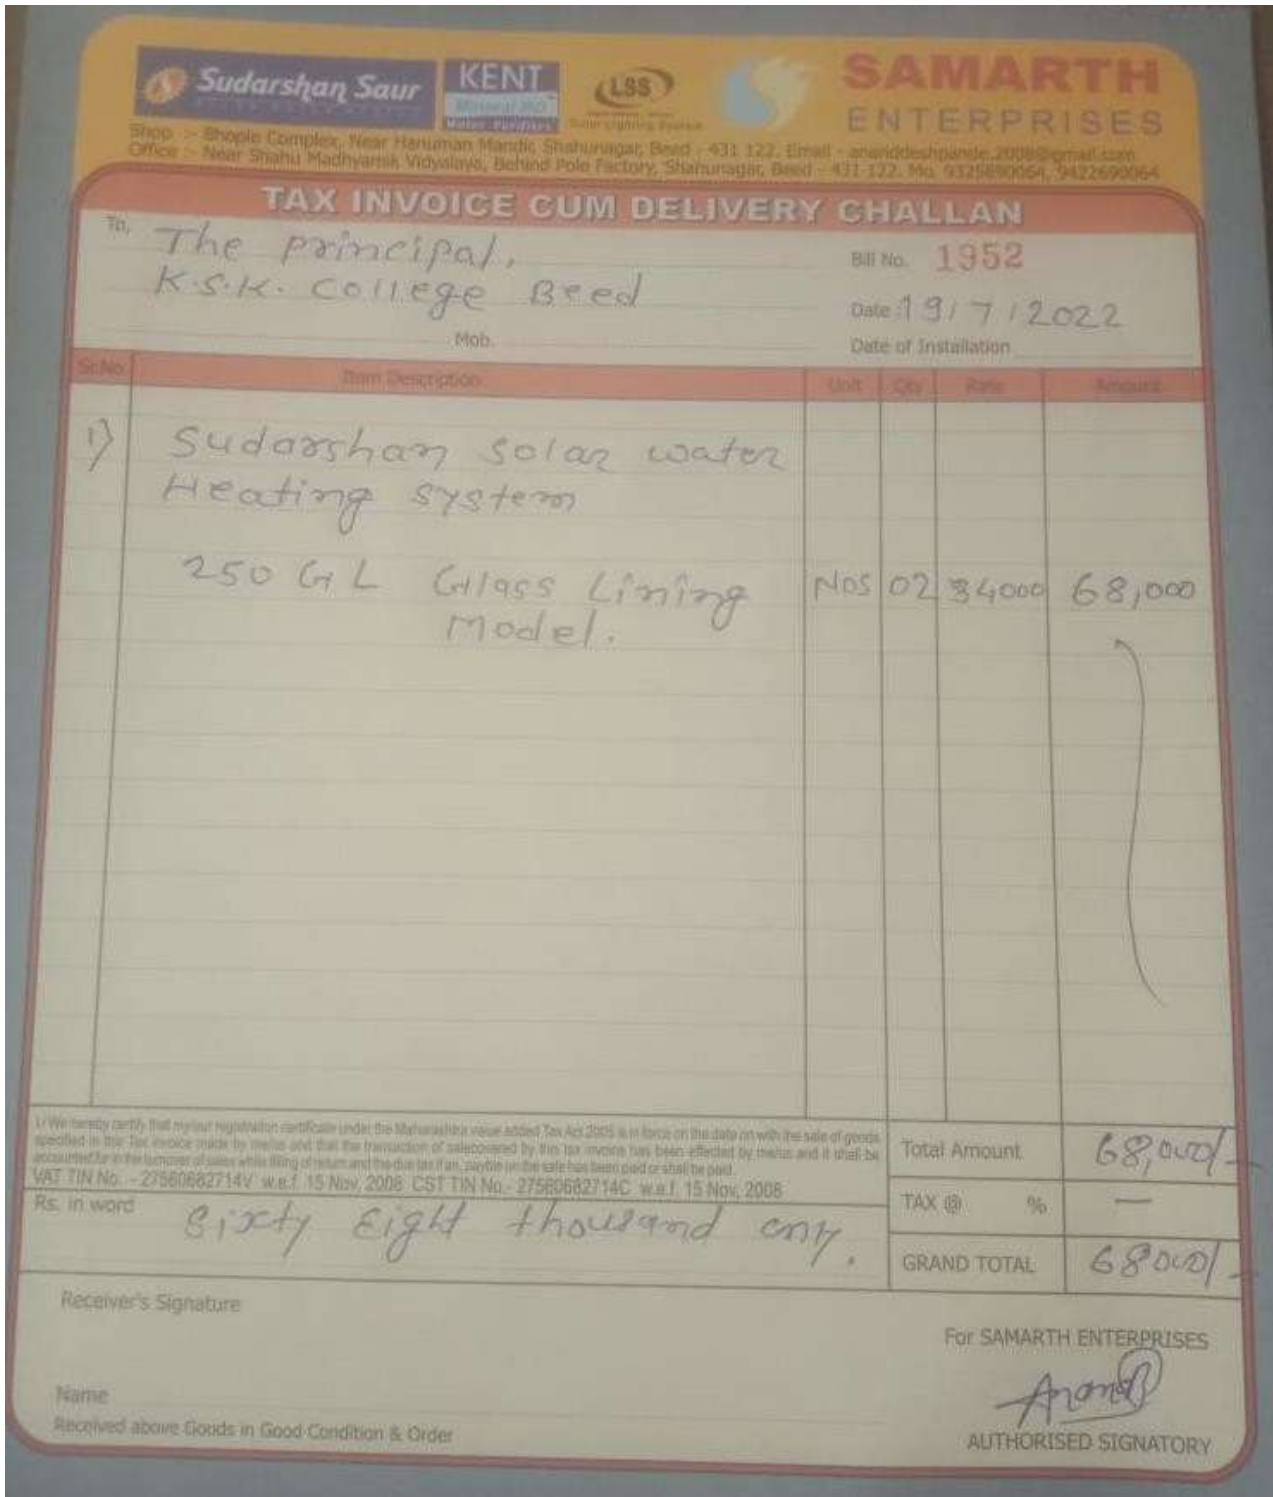 Sudarshan Saur
KENT
Mineral RO
Water Purifiers
LSS
Solar Lighting System
SAMARTH
ENTERPRISES
Shop :- Bhople Complex, Near Hanuman Mandir, Shahunagar, Beed - 431 122. Email - ananddeshpande.2008@gmail.com
Office :- Near Shahu Madhyamik Vidyalaya, Behind Pole Factory, Shahunagar, Beed - 431 122. Mo. 9325690064, 9422690064
TAX INVOICE CUM DELIVERY CHALLAN
To, The principal,
K.S.K. College Beed
Mob.
Bill No. 1952
Date : 19/7/2022
Date of Installation
Sr.No. Item Description Unit Qty Rate Amount
1) Sudarshan Solar water
Heating System
250 GL Glass Lining Nos 02 34000 68,000
Model.
1) We hereby certify that my/our registration certificate under the Maharashtra value added Tax Act 2005 is in force on the date on with the sale of goods
specified in this Tax invoice made by me/us and that the transaction of salecovered by this tax invoice has been effected by me/us and it shall be
accounted for in the turnover of sales while filling of return and the due tax if an, payble on the sale has been paid or shall be paid.
VAT TIN No. - 27560682714V w.e.f. 15 Nov, 2008 CST TIN No.- 27560682714C w.e.f. 15 Nov, 2008
Total Amount 68,000/-
TAX @ % —
GRAND TOTAL 68000/-
Rs. in word Sixty Eight thousand only.
Receiver's Signature
For SAMARTH ENTERPRISES
Name
Received above Goods in Good Condition & Order
AUTHORISED SIGNATORY